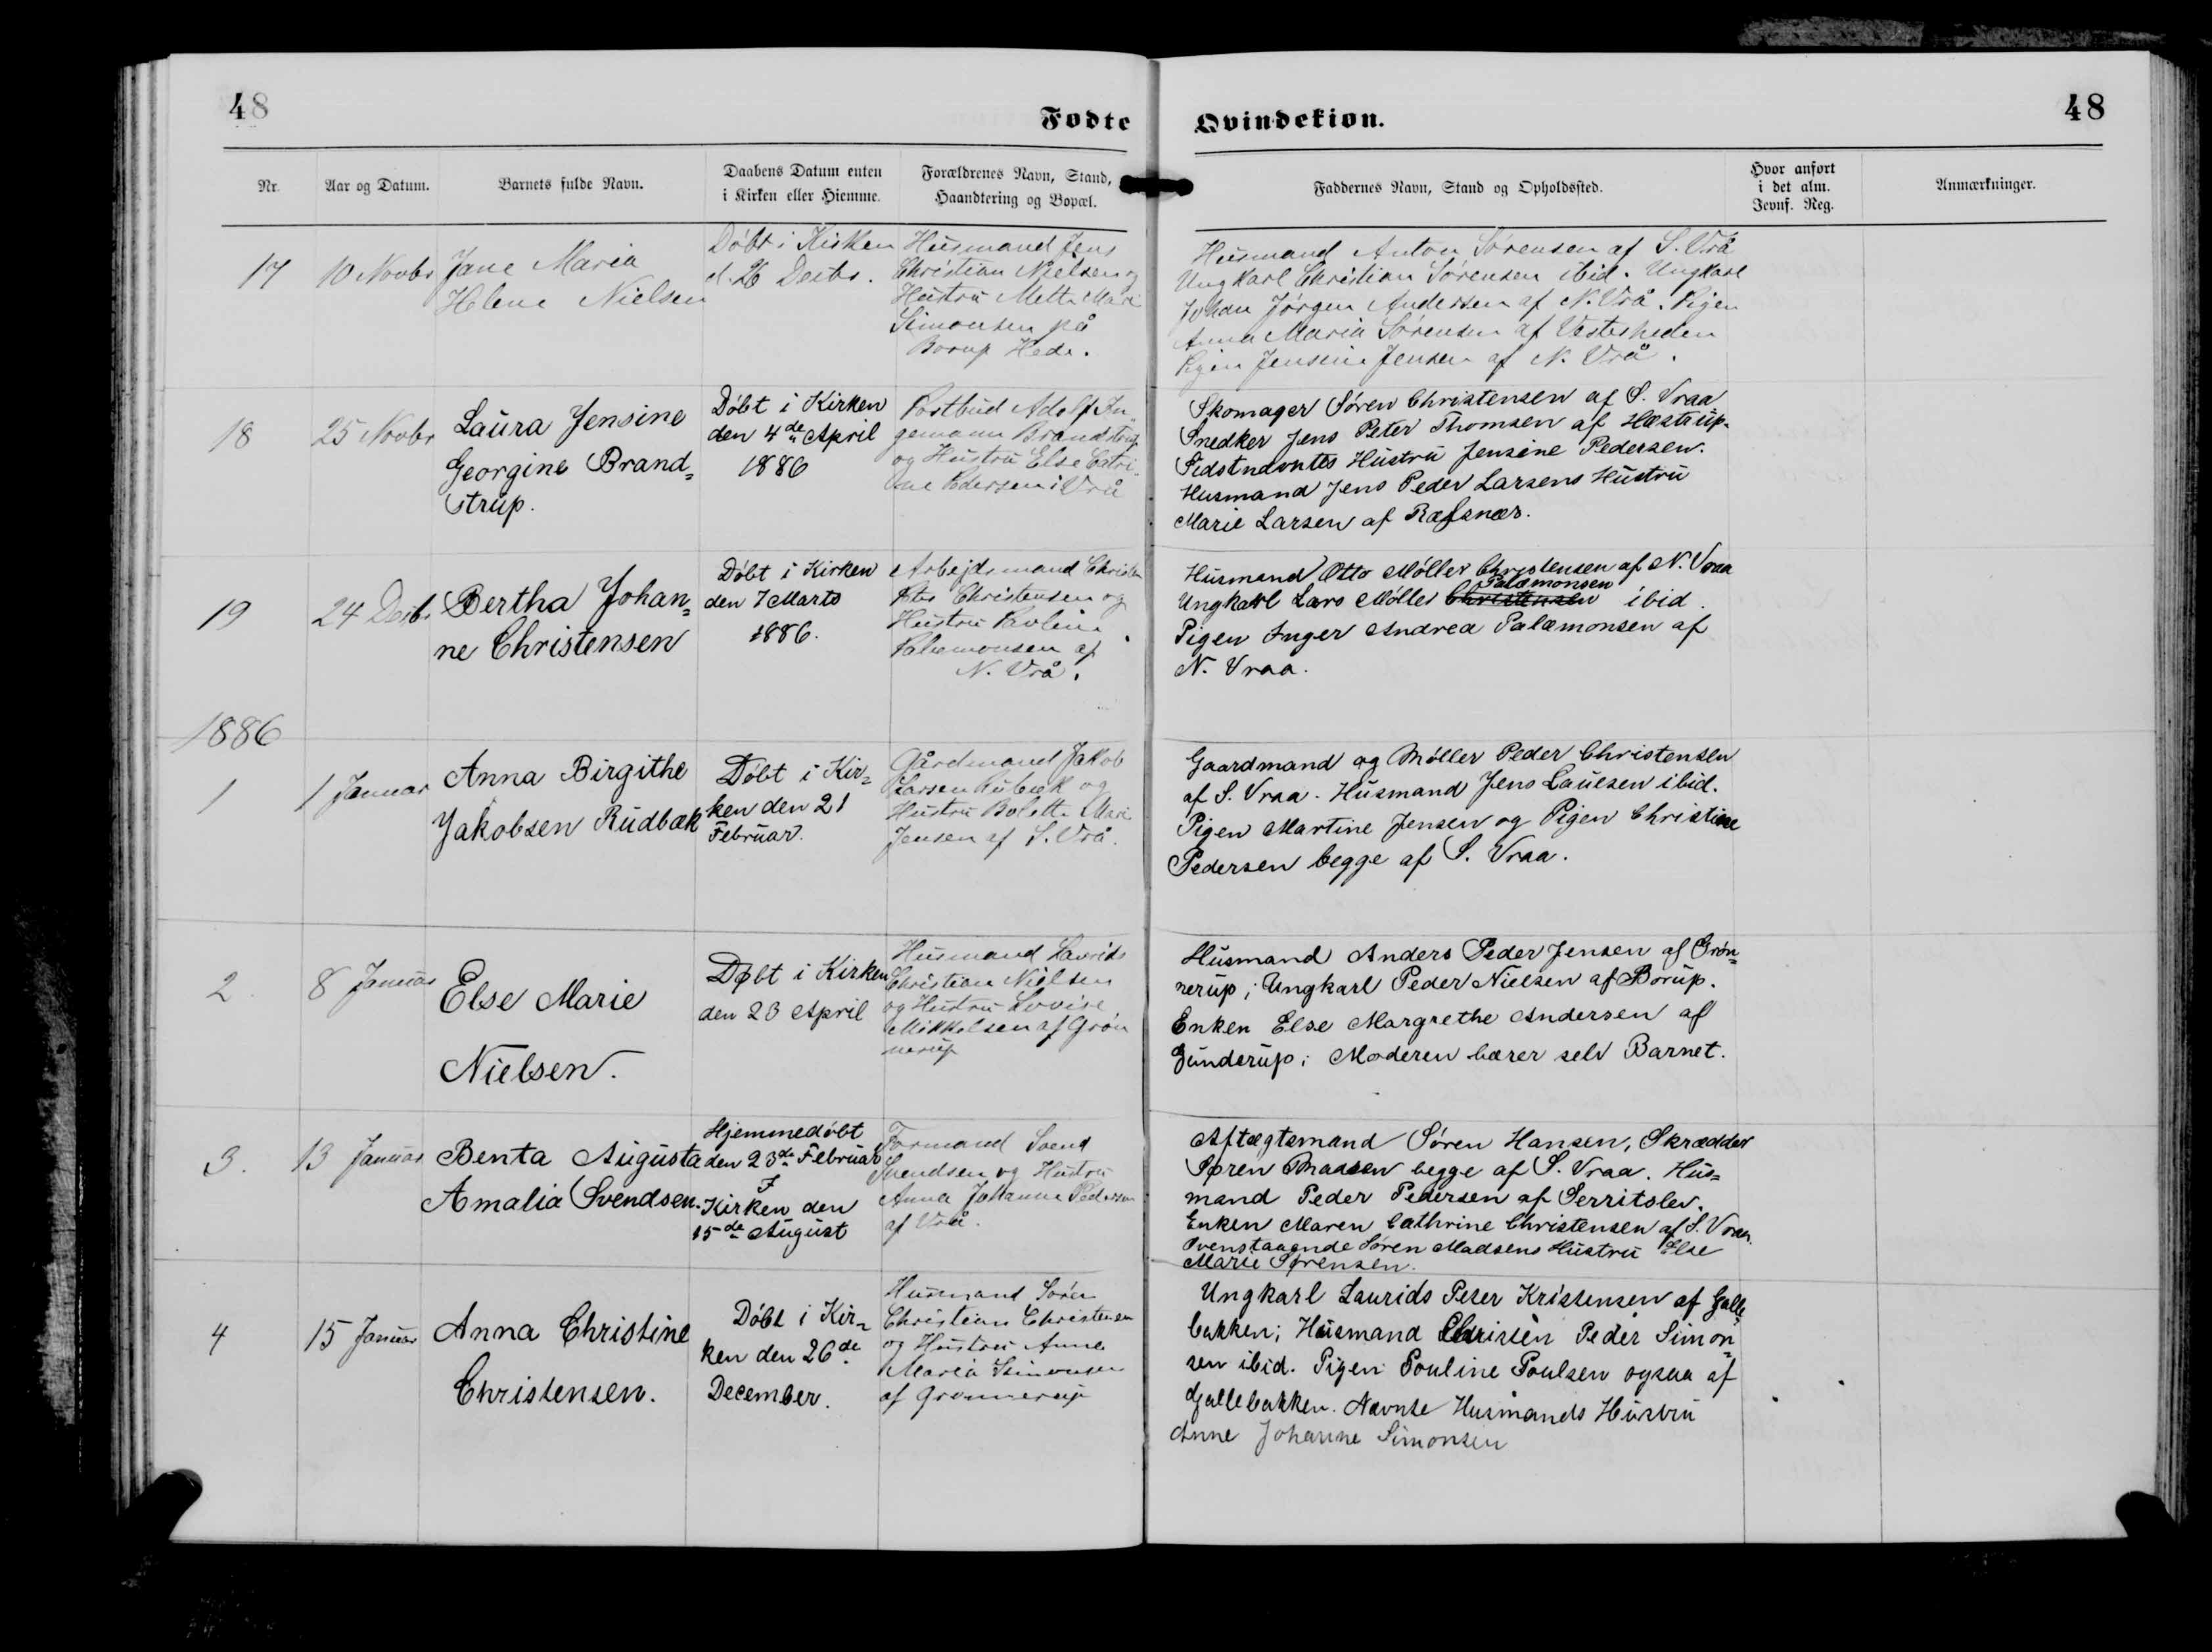 48
Fødte
Qvindekiøn.
48
Nr.
Aar og Datum.
Barnets fulde Navn.
Daabens Datum enten
i Kirken eller Hiemme.
Forældrenes Navn, Stand,
Haandtering og Bopæl.
Faddernes Navn, Stand og Opholdssted.
Hvor anført
i det alm.
Jevnf. Reg.
Anmærkninger.
17
10 Novbr
Jane Maria
Helene Nielsen
Döbt i Kirken
d. 26 Decbr.
Husmand Jens
Christian Nielsen og
Hustru Mette Marie
Simonsen på
Borup Hede.
Husmand Anton Sørensen af S. Vrå
Ungkarl Christian Sørensen ibid. Ungkarl
Johan Jørgen Andersen af N. Vrå. Pigen
Anna Maria Sørensen af Vesterheden
Pigen Jensine Jensen af N. Vrå.
18
25 Novbr
Laura Jensine
Georgine Brand=
strup.
Döbt i Kirken
den 4de April
1886
Postbud Adolf In=
gemann Brandstrup
og Hustru Else Catri=
ne Pedersen i Vrå
Skomager Søren Christensen af S. Vraa
Snedker Jens Peter Thomsen af Hæstrup.
Sidstnævntes Hustru Jensine Pedersen.
Husmand Jens Peder Larsens Hustru
Marie Larsen af Ræfsnær.
19
24 Decbr
Bertha Johan=
ne Christensen
Döbt i Kirken
den 7 Marts
1886.
Arbejdsmand Christen
Peter Christensen og
Hustru Pouline
Palæmonsen af
N. Vrå.
Husmand Otto Møller Christensen af N. Vraa
Palæmonsen
Ungkarl Lars Møller Christensen ibid.
Pigen Inger Andrea Palæmonsen af
N. Vraa.
1886
1
1 Januar
Anna Birgithe
Jakobsen Rudbæk
Döbt i Kir=
ken den 21
Februar.
Gårdmand Jakob
Larsen Rubæk og
Hustru Bolette Marie
Jensen af S. Vrå.
Gaardmand og Møller Peder Christensen
af S. Vraa. Husmand Jens Laursen ibid.
Pigen Martine Jensen og Pigen Christine
Pedersen begge af S. Vraa.
2.
8 Januar
Else Marie
Nielsen.
Døbt i Kirken
den 23 April
Husmand Lavrids
Christian Nielsen
og Hustru Lovise
Mikkelsen af Grön
nerup
Husmand Anders Peder Jensen af Grøn=
nerup; Ungkarl Peder Nielsen af Borup.
Enken Else Margrethe Andersen af
Gunderup; Moderen bærer selv Barnet.
3.
13 Januar
Benta Augusta
Amalia Svendsen.
Hjemmedøbt
den 23de Februar
I
Kirken den
15de August
Formand Svend
Svendsen og Hustru
Anna Johanne Pedersen
af Vrå.
Aftægtsmand Søren Hansen, Skrædder
Søren Madsen begge af S. Vraa. Hus=
mand Peder Pedersen af Serritslev.
Enken Maren Cathrine Christensen af S. Vraa.
Ovenstaaende Søren Madsens Hustru Else
Marie Sørensen.
4
15 Januar
Anna Christine
Christensen.
Döbt i Kir=
ken den 26de
December.
Husmand Sören
Christian Christensen
og Hustru Anne
Maria Simonsen
af Grønnerup
Ungkarl Laurids Peter Kristensen af Galle=
bakken; Husmand Christen Peder Simon=
sen ibid. Pigen Pouline Poulsen ogsaa af
Gallebakken. Nævnte Husmands Hustru
Anne Johanne Simonsen